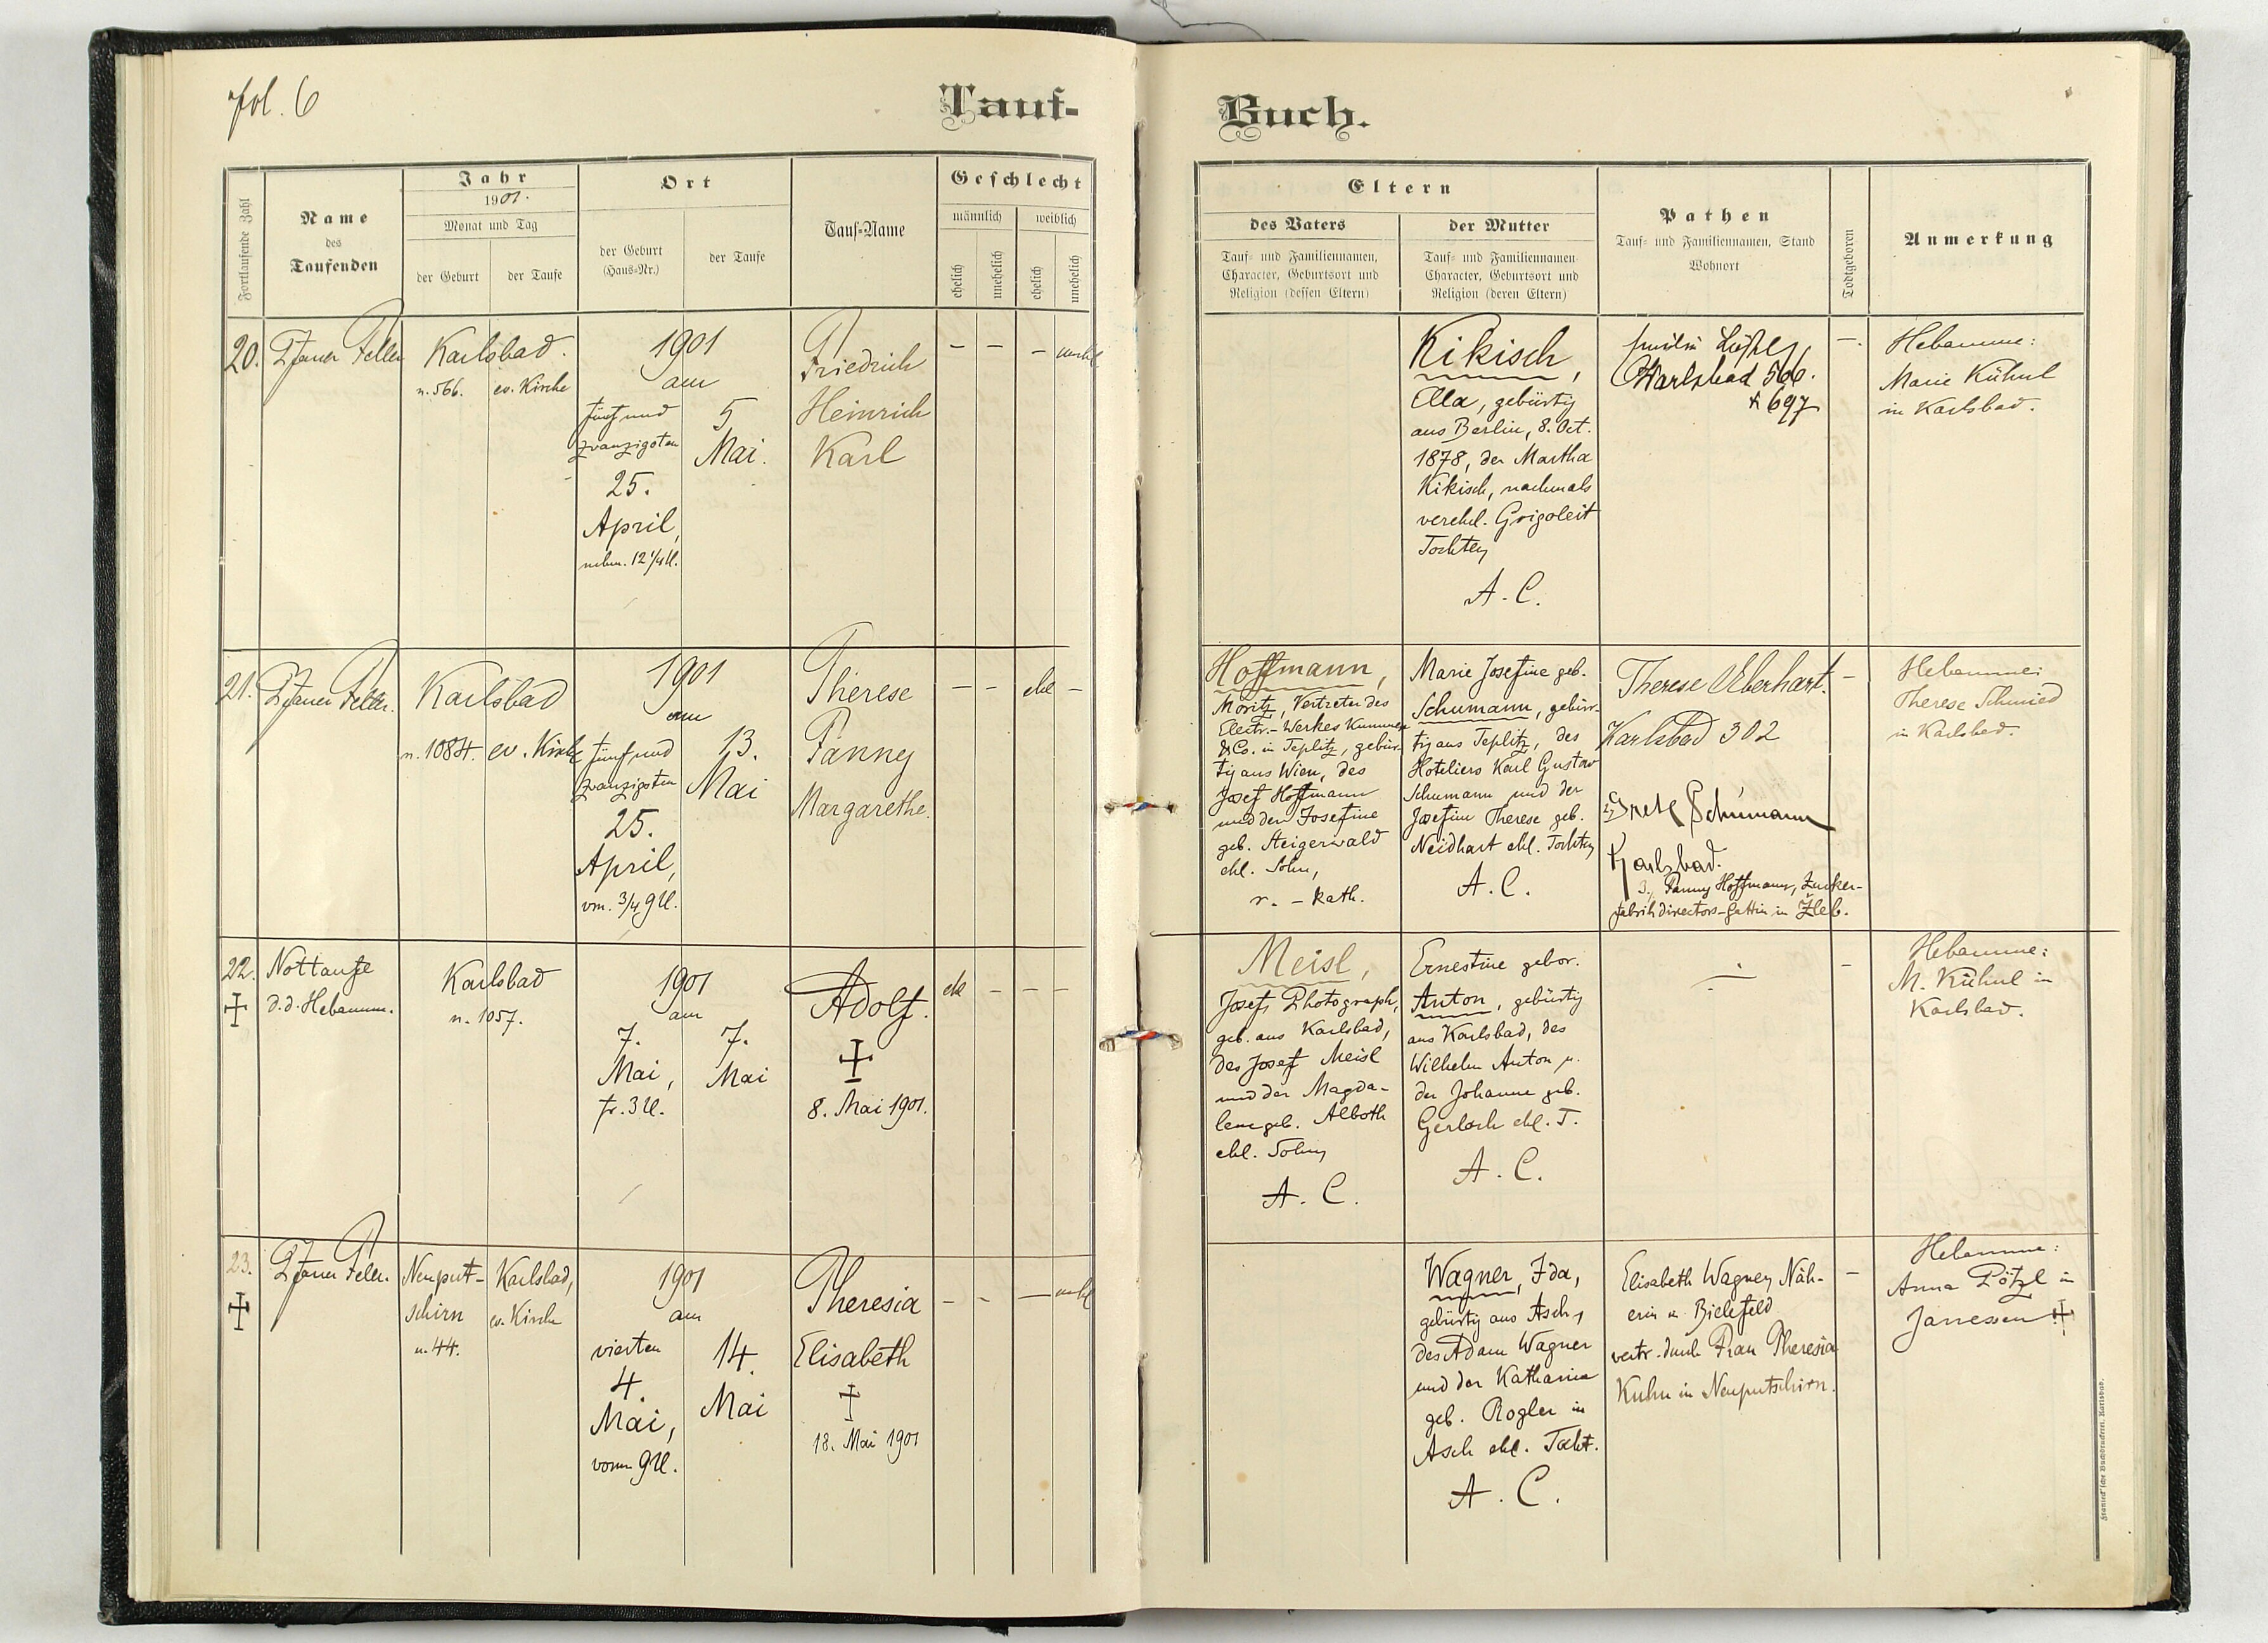 fol. 6
Tauf-
Buch.
Fortlaufende Zahl
Name
des
Taufenden
Jahr
1901.
Monat und Tag
der Geburt
der Taufe
Ort
der Geburt
(Haus-Nr.)
der Taufe
Tauf-Name
Geschlecht
männlich
weiblich
ehelich
unehelich
ehelich
unehelich
Eltern
des Vaters
Tauf- und Familiennamen,
Character, Geburtsort und
Religion (dessen Eltern)
der Mutter
Tauf- und Familiennamen
Character, Geburtsort und
Religion (deren Eltern)
Pathen
Tauf- und Familiennamen, Stand
Wohnort
Todtgeboren
Anmerkung
20.
Pfarrer Feller
Karlsbad.
n. 566.
ev. Kirche
1901
am
fünfund
zwanzigsten
25.
April,
nchm. 12 1/4 U.
5
Mai.
Friedrich
Heinrich
Karl
– – –
unehl.
Kikisch,
Ella, gebürtig
aus Berlin, 8. Oct.
1878, der Martha
Kikisch, nachmals
verehel. Grigoleit
Tochter
A. C.
Karlsbad 566.
697
–.
Hebamme:
Marie Kühnl
in Karlsbad.
21.
Pfarrer Feller.
Karlsbad
n. 1084.
ev. Kirche
1901
am
fünfund
zwanzigsten
25.
April,
vm. 3/4 9 U.
13.
Mai
Therese
Fanny
Margarethe.
– – ehl –
Hoffmann,
Moritz, Vertreter des
Electr.-Werkes Kummer
& Co. in Teplitz, gebür-
tig aus Wien, des
Josef Hoffmann
und der Josefine
geb. Steigerwald
ehl. Sohn,
r. - kath.
Marie Josefine geb.
Schumann, gebür-
tig aus Teplitz, des
Hoteliers Karl Gustav
Schumann und der
Josefine Therese geb.
Neidhart ehl. Tochter
A. C.
Therese Eberhart.
Karlsbad 302
Grete Schumann
Karlsbad.
3., Fanny Hoffmann, Zucker-
fabrikdirectors-Gattin in Žleb.
–
Hebamme:
Therese Schmied
in Karlsbad.
22.
✝
Nottaufe
d. d. Hebamm.
Karlsbad
n. 1057.
1901
am
7.
Mai,
fr. 3 U.
7.
Mai
Adolf.
✝
8. Mai 1901.
ehl – – –
Meisl,
Josef, Photograph,
geb. aus Karlsbad,
des Josef Meisl
und der Magda-
lene geb. Alboth
ehl. Sohn
A. C.
Ernestine gebor.
Anton, gebürtig
aus Karlsbad, des
Wilhelm Anton u.
der Johanne geb.
Gerlach ehl. T.
A. C.
–
Hebamme:
M. Kühnl in
Karlsbad.
23.
✝
Pfarrer Feller.
Neuput-
schirn
n. 44.
Karlsbad,
ev. Kirche
1901
am
vierten
4.
Mai,
vorm 9 U.
14.
Mai
Theresia
Elisabeth
✝
18. Mai 1901
– – –
unehl
Wagner, Ida,
gebürtig aus Asch,
des Adam Wagner
und der Katharina
geb. Rogler in
Asch ehl. Tocht.
A. C.
Elisabeth Wagner, Näh-
erin in Bielefeld
vertr. durch Frau Theresia
Kuhn in Neuputschirn.
–
Hebamme:
Anna Pötzl in
Janessen ✝
Buchdruckerei, Karlsbad.